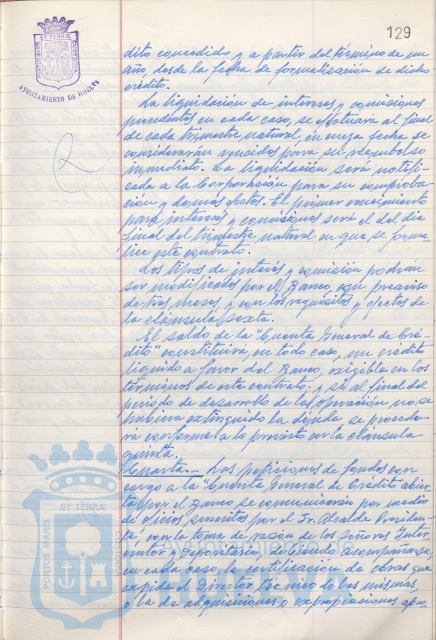 129
AYUNTAMIENTO DE HUELVA
dito concedido y a partir del término de un
año, desde la fecha de formalización de dicho
crédito.
La liquidación de intereses y comisiones
procedentes en cada caso, se efectuará al final
de cada trimestre natural, en cuya fecha se
considerarán vencidos para su reembolso
inmediato. La liquidación será notifi-
cada a la Corporación para su comproba-
ción y demás efectos. El primer vencimiento
para intereses y comisiones será el del día
final del trimestre natural en que se forma-
lice este contrato.
Los tipos de interés y comisión podrán
ser modificados por el Banco, con preaviso
de tres meses, y con los requisitos y efectos de
la cláusula sexta.
El saldo de la "Cuenta General de Cré-
dito" constituirá, en todo caso, un crédito
líquido a favor del Banco, exigible en los
términos de este contrato. y si al final del
período de desarrollo de la operación no se
hubiera extinguido la deuda se procede-
rá conforme a lo previsto en la cláusula
quinta.
Cuarta.- Las peticiones de fondos con
cargo a la "Cuenta General de Crédito" abier-
ta por el Banco se comunicarán por medio
de oficios suscritos por el Sr. Alcalde Presiden-
te, con la toma de razón de los señores Inter-
ventor y Depositario, debiendo acompañarse,
en cada caso, la certificación de obras que
expida el Director Técnico de las mismas,
o la de adquisiciones o expropiaciones apro-
ET TERRÆ
PORTUS MARIS